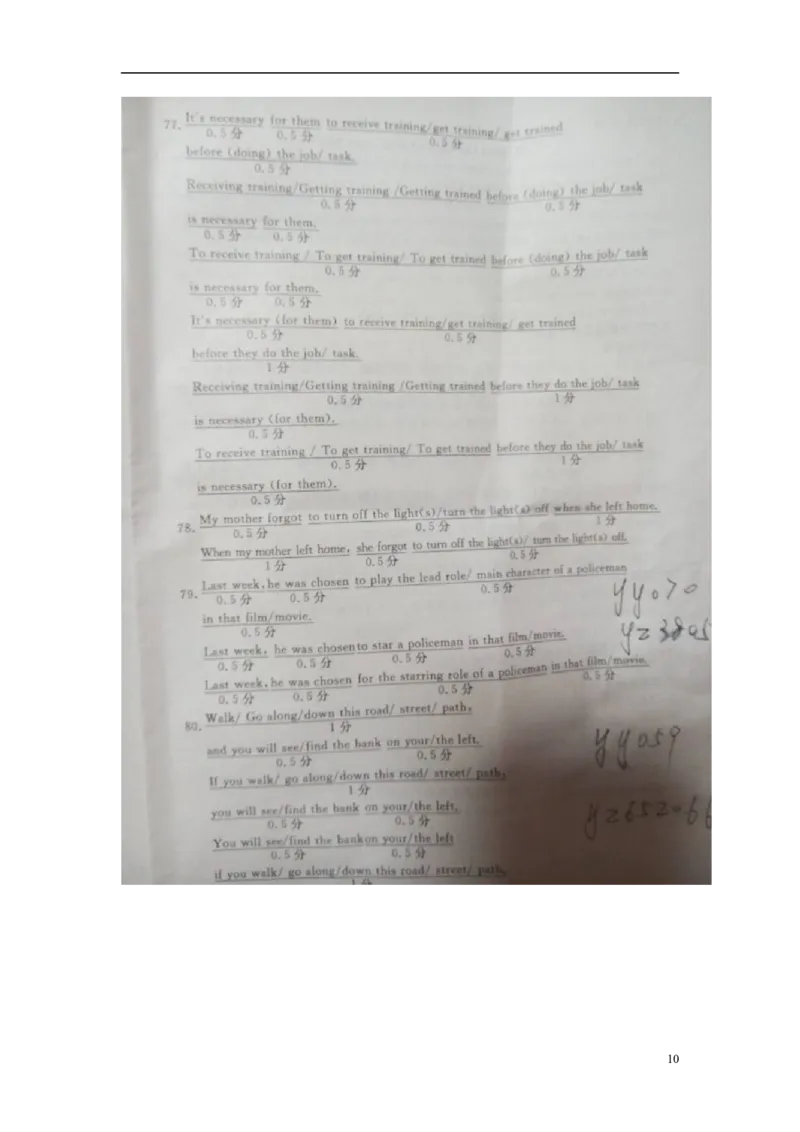 77. It's necessary for them to receive training/get training/ get trained
0.5分 0.5分 0.5分
before (doing) the job/ task.
0.5分
Receiving training/Getting training /Getting trained before (doing) the job/ task
0.5分 0.5分
is necessary for them.
0.5分 0.5分
To receive training / To get training/ To get trained before (doing) the job/ task
0.5分 0.5分
is necessary for them.
0.5分 0.5分
It's necessary (for them) to receive training/get training/ get trained
0.5分 0.5分
before they do the job/ task.
1分
Receiving training/Getting training /Getting trained before they do the job/ task
0.5分 1分
is necessary (for them).
0.5分
To receive training / To get training/ To get trained before they do the job/ task
0.5分 1分
is necessary (for them).
0.5分
78. My mother forgot to turn off the light(s)/turn the light(s) off when she left home.
0.5分 0.5分 1分
When my mother left home, she forgot to turn off the light(s)/ turn the light(s) off.
1分 0.5分 0.5分
79. Last week, he was chosen to play the lead role/ main character of a policeman
0.5分 0.5分 0.5分
in that film/movie.
0.5分
Last week, he was chosen to star a policeman in that film/movie.
0.5分 0.5分 0.5分 0.5分
Last week, he was chosen for the starring role of a policeman in that film/movie.
0.5分 0.5分 0.5分 0.5分
80. Walk/ Go along/down this road/ street/ path,
1分
and you will see/find the bank on your/the left.
0.5分 0.5分
If you walk/ go along/down this road/ street/ path,
1分
you will see/find the bank on your/the left.
0.5分 0.5分
You will see/find the bank on your/the left
0.5分 0.5分
if you walk/ go along/down this road/ street/ path.
1分
yy070
yy059
10